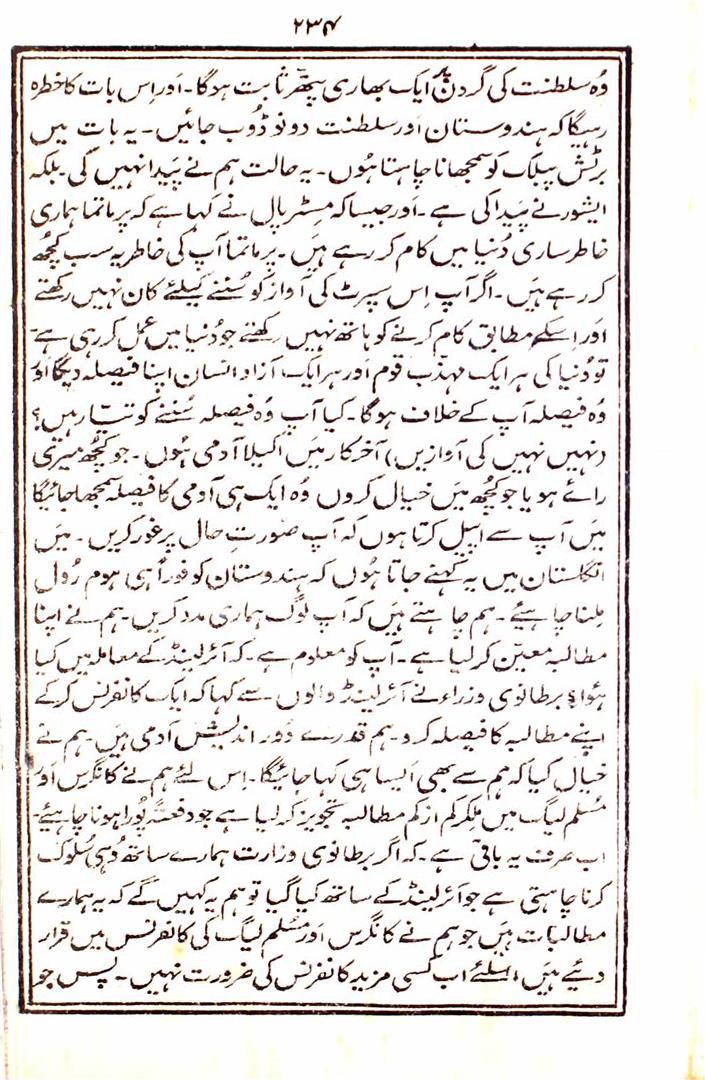 ۲۳۴
وُہ سلطنت کی گردن پر ایک بھاری پتھر ثابت ہوگا۔ اَور اِس بات کا خطرہ
رہیگا کہ ہندوستان اَور سلطنت دونو ڈُوب جائیں۔ یہ بات میں
برٹش پبلک کو سمجھانا چاہتا ہُوں۔ یہ حالت ہم نے پَیدا نہیں کی۔ بلکہ
ایشور نے پَیدا کی ہے۔ اَور جیسا کہ مِسٹر پال نے کہا ہے کہ پرماتما ہماری
خاطر ساری دُنیا میں کام کر رہے ہیں۔ پرماتما آپ کی خاطر یہ سب کچھُ
کر رہے ہَیں۔ اگر آپ اِس سپرٹ کی آواز کو سُننے کیلئے کان نہیں رکھتے
اور اِسکے مطابق کام کرنے کو ہاتھ نہیں رکھتے جو دُنیا میں عمل کر رہی ہے۔
تو دُنیا کی ہر ایک مہذّب قوم اَور ہر ایک آزاد انسان اپنا فیصلہ دیگا اَور
وُہ فیصلہ آپ کے خلاف ہوگا۔ کیا آپ وُہ فیصلہ سُننے کو تیار ہیں؟
(نہیں نہیں کی آوازیں) آخر کار مَیں اکیلا آدمی ہُوں۔ جو کچھُ میری
رائے ہو یا جو کچھُ مَیں خیال کروں وُہ ایک ہی آدمی کا فیصلہ سمجھا جائیگا
مَیں آپ سے اپیل کرتا ہوں کہ آپ صورتِ حال پر غور کریں۔ مَیں
انگلستان میں یہ کہنے جاتا ہُوں کہ ہندوستان کو فوراً ہی ہوم رُول
مِلنا چاہیئے۔ ہم چاہتے ہَیں کہ آپ لوگ ہماری مدد کریں۔ ہم نے اپنا
مطالبہ معیّن کر لیا ہے۔ آپ کو معلوم ہے۔ کہ آئرلینڈ کے معاملہ میں کیا
ہُوا؟ برطانوی وزراء نے آئرلینڈ والوں سے کہا کہ ایک کانفرنس کر کے
اپنے مطالبہ کا فیصلہ کرو۔ ہم قدرے دُور اندیش آدمی ہَیں۔ ہم نے
خیال کیا کہ ہم سے بھی اَیسا ہی کہا جائیگا۔ اِس لئے ہم نے کانگرس اَور
مُسلم لیگ میں مِلکر کم از کم مطالبہ تجویز کر لیا ہے جو دفعتہً پُورا ہونا چاہیئے۔
اب صرف یہ باقی ہے۔ کہ اگر برطانوی وزارت ہمارے ساتھ وُہی سُلوک
کرنا چاہتی ہے جو آئرلینڈ کے ساتھ کیا گیا تو ہم یہ کہیں گے کہ یہ ہمارے
مطالبات ہَیں جو ہم نے کانگرس اَور مُسلم لیگ کی کانفرنس میں قرار
دئیے ہَیں، اِسلئے اب کسی مزید کانفرنس کی ضرورت نہیں۔ پس جو